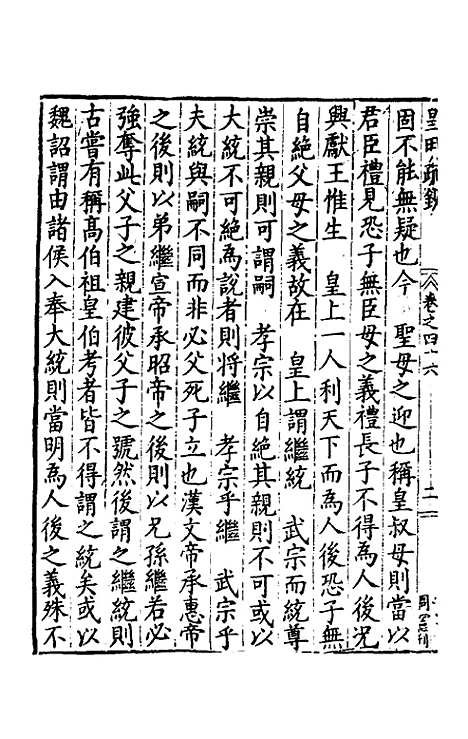 皇明疏鈔 卷之四十六 二
固不能無疑也今 聖母之迎也稱皇叔母則當以
君臣禮見恐子無臣母之義禮長子不得為人後况
興獻王惟生 皇上一人利天下而為人後恐子無
自絶父母之義故在 皇上謂繼統 武宗而統尊
崇其親則可謂嗣 孝宗以自絶其親則不可或以
大統不可絶為說者則將繼 孝宗乎繼 武宗乎
夫統與嗣不同而非必父死子立也漢文帝承惠帝
之後則以弟繼宣帝承昭帝之後則以兄孫繼若必
強奪此父子之親建彼父子之號然後謂之繼統則
古嘗有稱髙伯祖皇伯考者皆不得謂之統矣或以
魏詔謂由諸侯入奉大統則當明為人後之義殊不